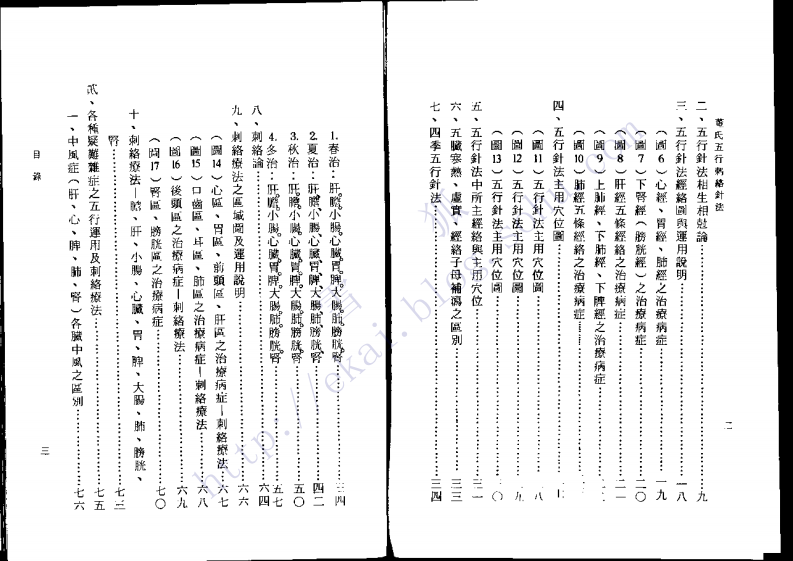 蔄氏五行刺絡針法
二、五行針法相生相尅論……九
三、五行針法經絡圖與運用說明……一八
（圖6）心經、胃經、肺經之治療病症……一九
（圖7）下腎經（膀胱經）之治療病症……二〇
（圖8）肝經五條經絡之治療病症……二一
（圖9）上肺經、下肺經、下脾經之治療病症……
（圖10）肺經五條經絡之治療病症……
四、五行針法主用穴位圖……
（圖11）五行針法主用穴位圖……八
（圖12）五行針法主用穴位圖……九
（圖13）五行針法主用穴位圖……〇
五、五行針法中所主經絡與主用穴位……三一
六、五臟寒熱、虛實、經絡子母補瀉之區別……三三
七、四季五行針法……三四
二
1.春治：肝。膽。小腸。心臟。胃。脾。大腸。肺。膀胱。腎……三四
2.夏治：肝。膽。小腸、心臟、胃。脾、大腸、肺、膀胱、腎……四二
3.秋治：肝。膽。小腸。心臟。胃。脾。大腸。肺。膀胱。腎……五〇
4.冬治：肝。膽。小腸。心臟。胃。脾。大腸。肺。膀胱。腎……五七
八、刺絡論……六四
九、刺絡療法之區域圖及運用說明……六六
（圖14）心區、胃區、前頭區、肝區之治療病症—刺絡療法……六七
（圖15）口齒區、耳區、肺區之治療病症—刺絡療法……六八
（圖16）後頭區之治療病症—刺絡療法……六九
（圖17）腎區、膀胱區之治療病症……七〇
十、刺絡療法—膽、肝、小腸、心臟、胃、脾、大腸、肺、膀胱、
腎……七三
貳、各種疑難雜症之五行運用及刺絡療法……七五
一、中風症（肝、心、脾、肺、腎）各臟中風之區別……七六
目錄
三
http://ekai.blog